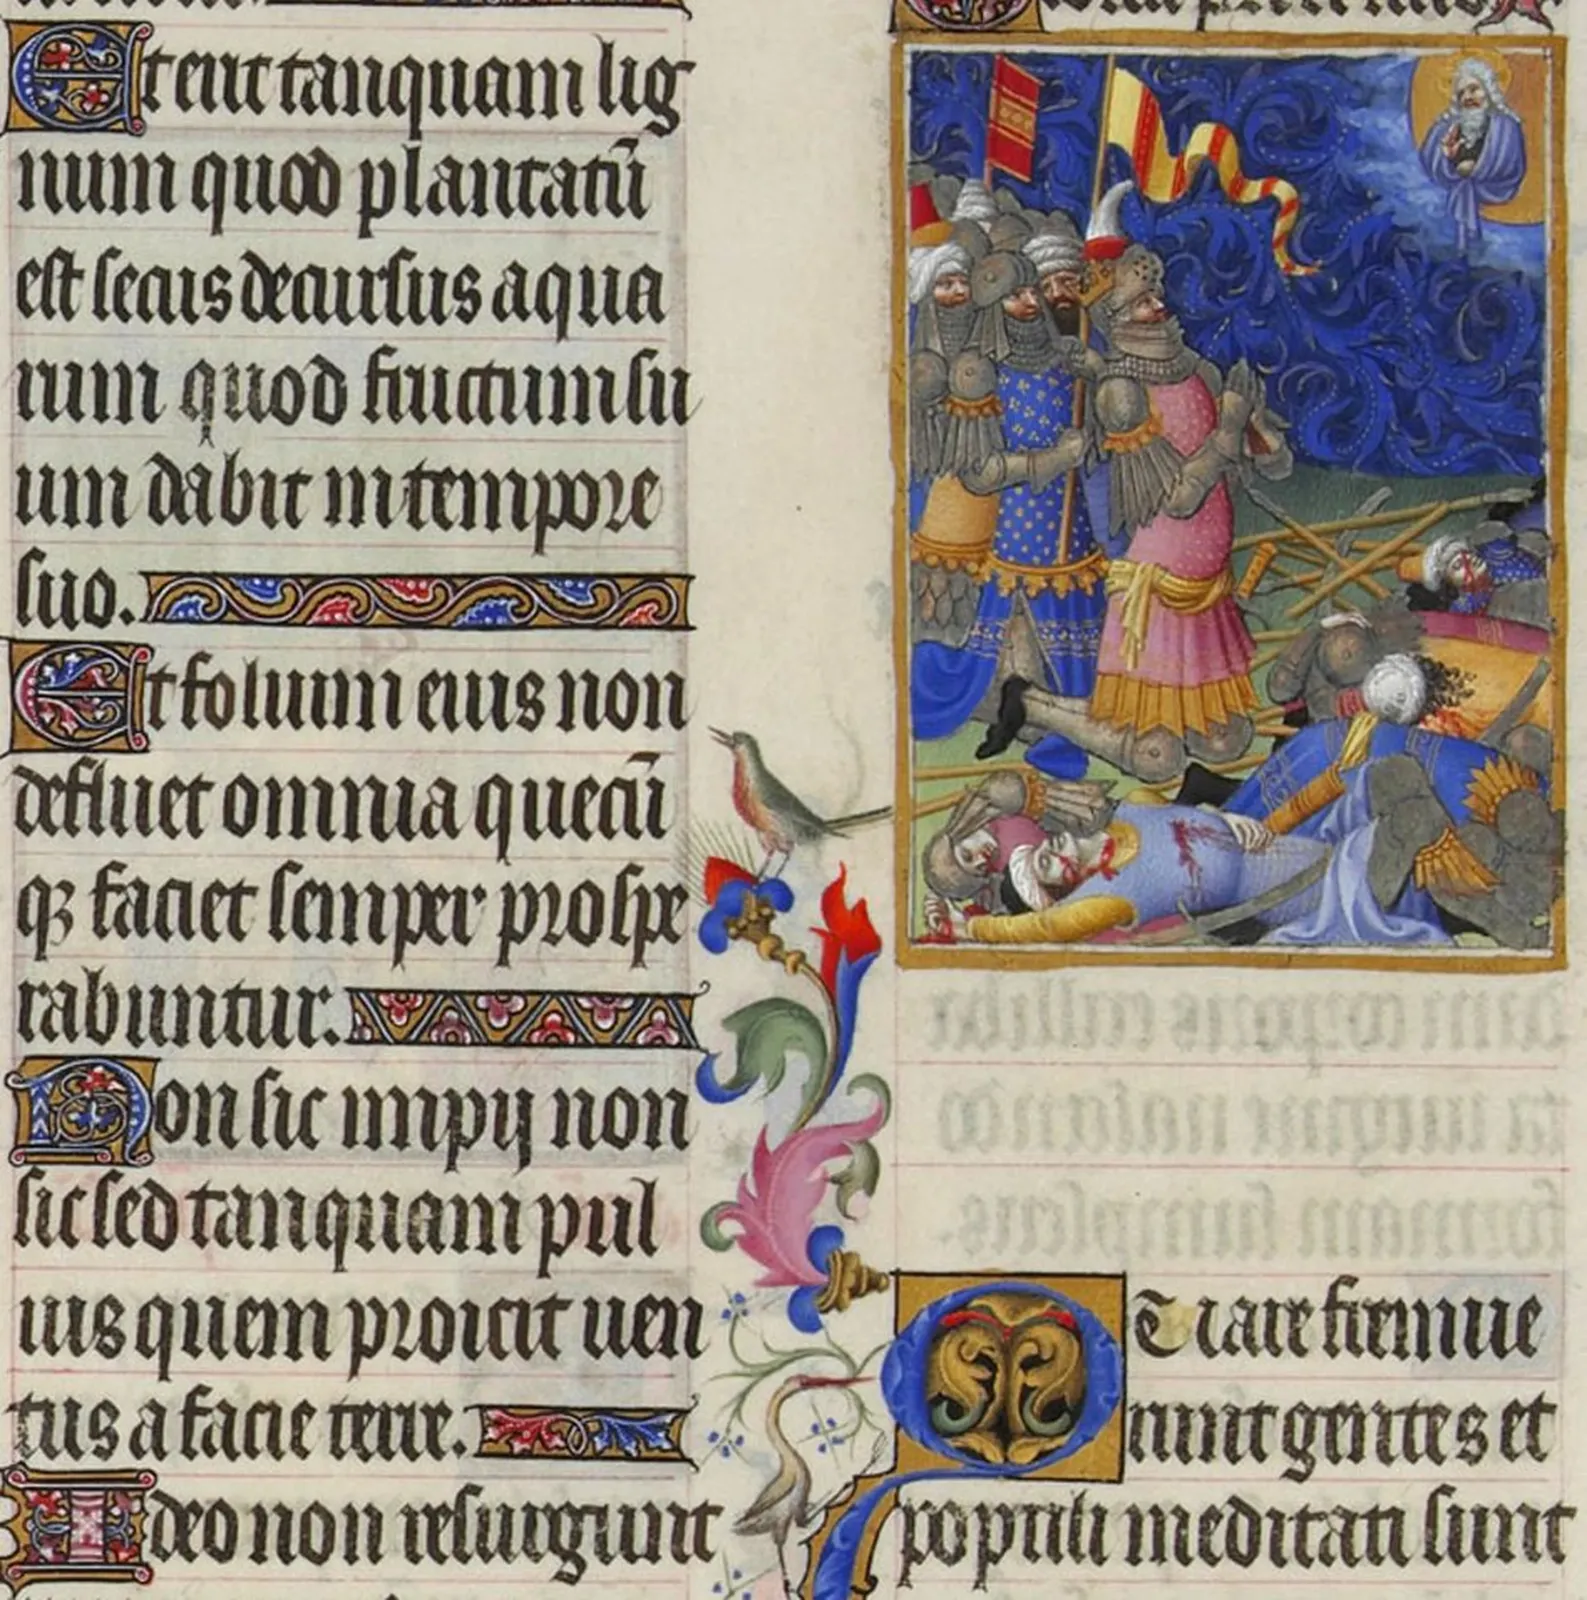 Et erit tanquam lig
num quod plantatū
est secus decursus aqua
rum quod fructum su
um dabit in tempore
suo.
Et folium eius non
defluet omnia quecū
qꝫ faciet semper prospe
rabuntur.
Non sic impij non
sic sed tanquam pul
uis quem proicit uen
tus a facie terre.
Ideo non resurgunt
Gloria patri
Quare fremue
runt gentes et
populi meditati sunt